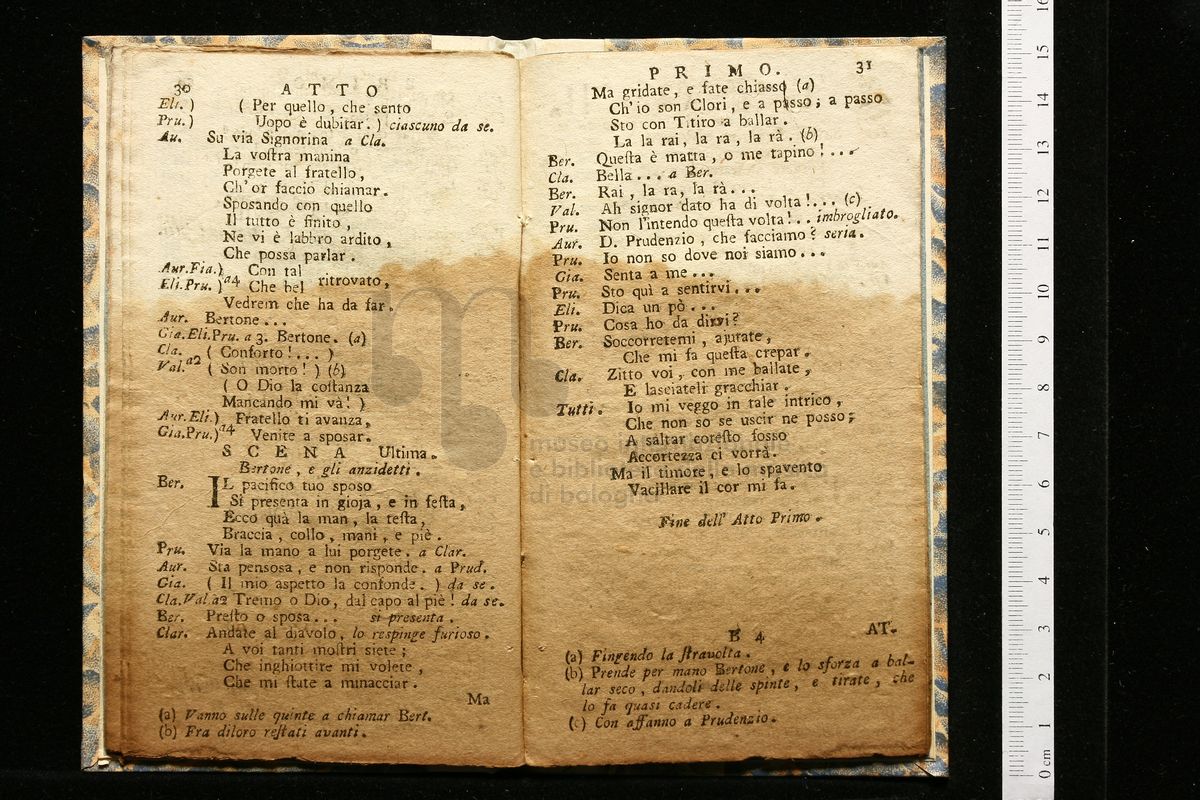 30 ATTO
Eli. ) ( Per quello, che sento
Pru. ) Uopo è dubitar. ) ciascuno da se.
Au. Su via Signorina a Cla.
La vostra manina
Porgete al fratello,
Ch' or faccio chiamar.
Sposando con quello
Il tutto è finito,
Ne vi è labbro ardito,
Che possa parlar.
Aur.Fia.) Con tal
Eli.Pru. ) a4 Che bel ritrovato,
Vedrem che ha da far.
Aur. Bertone...
Gia.Eli.Pru. a 3. Bertone. (a)
Cla. ( Conforto!... )
Val. a2 ( Son morto! ) (b)
( O Dio la costanza
Mancando mi và! )
Aur.Eli.) Fratello ti avanza,
Gia.Pru.) a4 Venite a sposar.
SCENA Ultima.
Bertone, e gli anzidetti.
Ber. IL pacifico tuo sposo
Si presenta in gioja, e in festa,
Ecco quà la man, la testa,
Braccia, collo, mani, e piè.
Pru. Via la mano a lui porgete. a Clar.
Aur. Sta pensosa, e non risponde. a Prud.
Gia. ( Il mio aspetto la confonde. ) da se.
Cla.Val a2 Tremo o Dio, dal capo al piè! da se.
Ber. Presto o sposa... si presenta.
Clar. Andate al diavolo, lo respinge furioso.
A voi tanti mostri siete;
Che inghiottire mi volete,
Che mi state a minacciar.
Ma
(a) Vanno sulle quinte a chiamar Bert.
(b) Fra diloro restati avanti.
PRIMO. 31
Ma gridate, e fate chiasso (a)
Ch' io son Clori, e a passo; a passo
Sto con Titiro a ballar.
La la rai, la ra, la rà. (b)
Ber. Questa è matta, o me tapino!...
Cla. Bella... a Ber.
Ber. Rai, la ra, la rà...
Val. Ah signor dato ha di volta!... (c)
Pru. Non l'intendo questa volta!.. imbrogliato.
Aur. D. Prudenzio, che facciamo? seria.
Pru. Io non so dove noi siamo...
Gia. Senta a me...
Pru. Sto quì a sentirvi...
Eli. Dica un pò...
Pru. Cosa ho da dirvi?
Ber. Soccorretemi, ajutate,
Che mi fa questa crepar.
Cla. Zitto voi, con me ballate,
E lasciateli gracchiar.
Tutti. Io mi veggo in tale intrico,
Che non so se uscir ne posso;
A saltar coresto fosso
Accortezza ci vorrà.
Ma il timore, e lo spavento
Vacillare il cor mi fa.
Fine dell' Atto Primo.
B 4 AT-
(a) Fingendo la stravolta.
(b) Prende per mano Bertone, e lo sforza a bal-
lar seco, dandoli delle spinte, e tirate, che
lo fa quasi cadere.
(c) Con affanno a Prudenzio.
museo in
e biblio
di bologna
16
15
14
13
12
11
10
9
8
7
6
5
4
3
2
1
0 cm